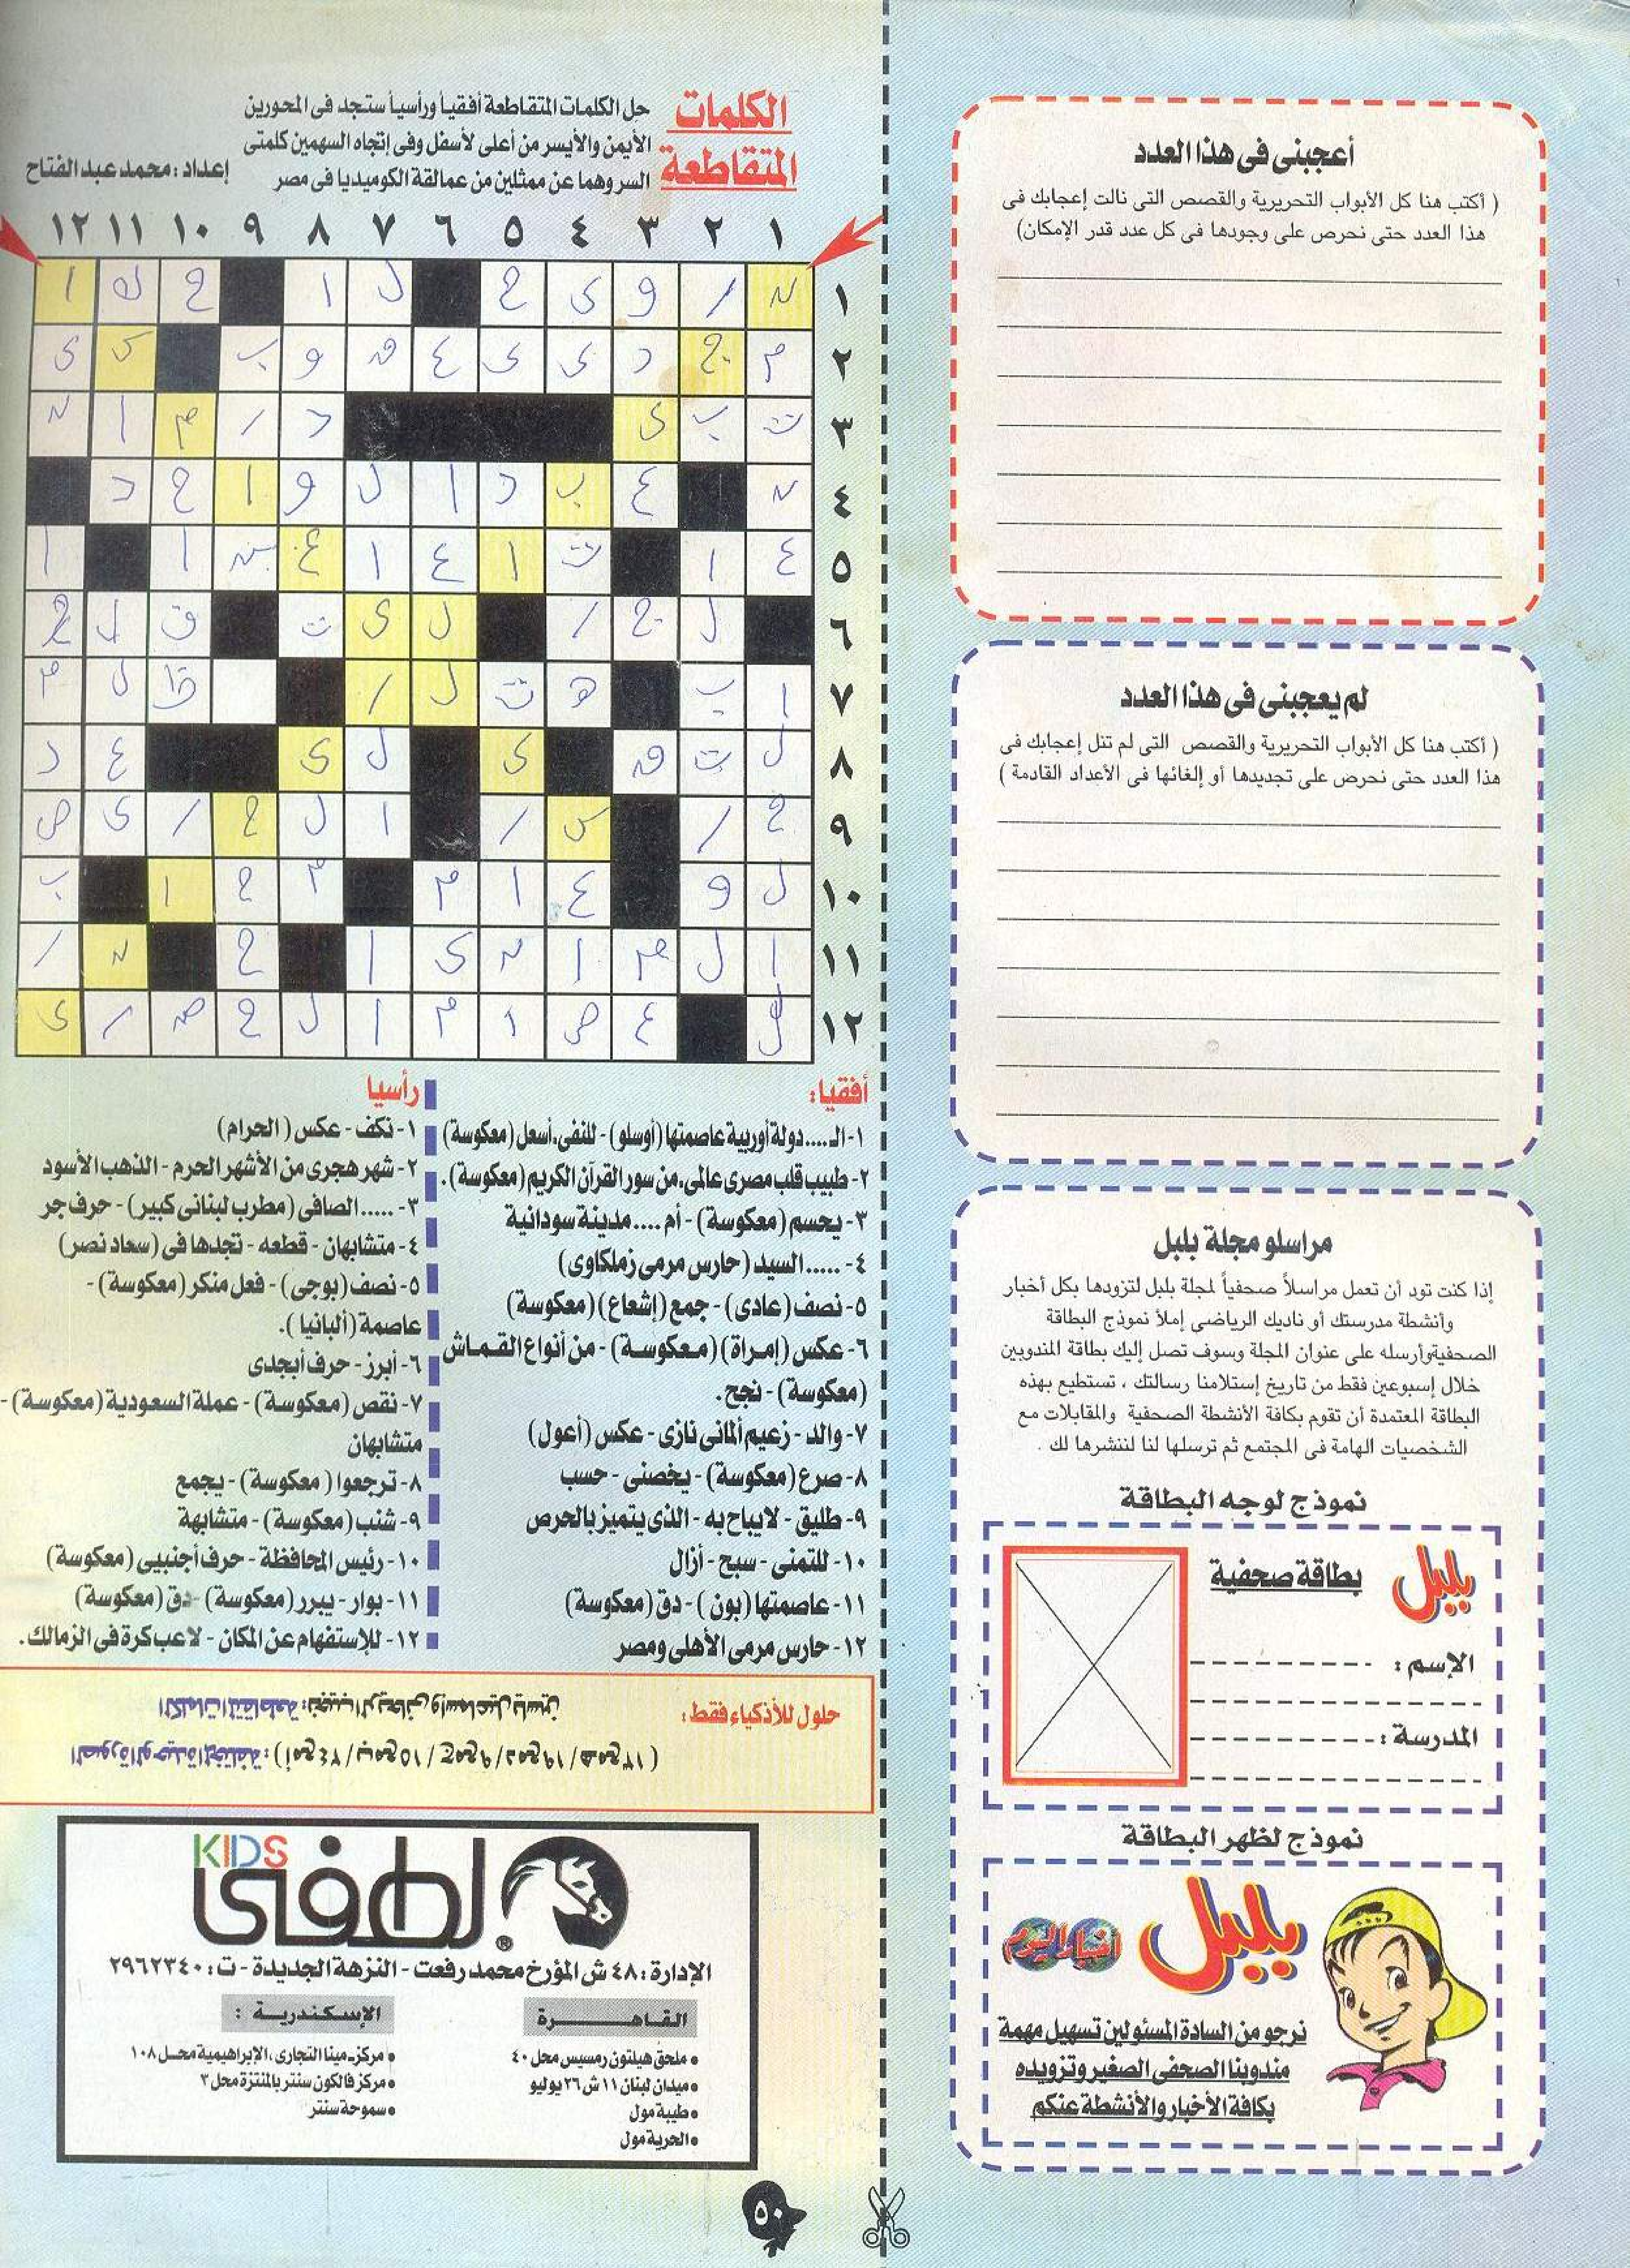 أعجبنى فى هذا العدد
( أكتب هنا كل الأبواب التحريرية والقصص التى نالت إعجابك فى
هذا العدد حتى نحرص على وجودها فى كل عدد قدر الإمكان)
لم يعجبنى فى هذا العدد
( أكتب هنا كل الأبواب التحريرية والقصص التى لم تنل إعجابك فى
هذا العدد حتى نحرص على تجديدها أو إلغائها فى الأعداد القادمة )
مراسلو مجلة بلبل
إذا كنت تود أن تعمل مراسلاً صحفياً لمجلة بلبل لتزودها بكل أخبار
وأنشطة مدرستك أو ناديك الرياضى إملأ نموذج البطاقة
الصحفية وأرسله على عنوان المجلة وسوف تصل إليك بطاقة المندوبين
خلال إسبوعين فقط من تاريخ إستلامنا رسالتك ، تستطيع بهذه
البطاقة المعتمدة أن تقوم بكافة الأنشطة الصحفية والمقابلات مع
الشخصيات الهامة فى المجتمع ثم ترسلها لنا لننشرها لك .
نموذج لوجه البطاقة
بلبل
بطاقة صحفية
الإسم :
المدرسة :
نموذج لظهر البطاقة
بلبل
أخبار اليوم
نرجو من السادة المسئولين تسهيل مهمة
مندوبنا الصحفى الصغير وتزويده
بكافة الأخبار والأنشطة عنكم
الكلمات
المتقاطعة
حل الكلمات المتقاطعة أفقياً ورأسياً ستجد فى المحورين
الأيمن والأيسر من أعلى لأسفل وفى إتجاه السهمين كلمتى
السر وهما عن ممثلين من عمالقة الكوميديا فى مصر
إعداد : محمد عبد الفتاح
١ ٢ ٣ ٤ ٥ ٦ ٧ ٨ ٩ ١٠ ١١ ١٢
١ ن ر و ى ج ل ا ح ك ا
٢ م ج د ى ى ع ق و ب ى ى
٣ ت ب ى د ر م ا ن
٤ ن ع ب د ا ل و ا ح د
٥ ع ا ت ا ع ا ع ش ا ا
٦ ل ج ر ل ى ت ف ل ح
٧ ا ب ه ت ل ر ل م
٨ ل ت ق ى ل ى ع د
٩ ح ر س ر ا ل ح ر ى ص
١٠ ل و ع ا م م ح ا ب
١١ ا ل م ا ن ى ا ح ن ر
١٢ ل ع ص ا م ا ل ح ض ر ى
أفقيا :
١- الـ .... دولة أوربية عاصمتها (أوسلو) - للنفى، أسعل (معكوسة)
٢- طبيب قلب مصرى عالمى، من سور القرآن الكريم (معكوسة).
٣- يحسم (معكوسة) - أم .... مدينة سودانية
٤- ..... السيد (حارس مرمى زملكاوى)
٥- نصف (عادى) - جمع (إشعاع) (معكوسة)
٦- عكس (إمرأة) (معكوسة) - من أنواع القماش
(معكوسة) - نجح.
٧- والد - زعيم ألمانى نازى - عكس (أعول)
٨- صرع (معكوسة) - يخصنى - حسب
٩- طليق - لايباح به - الذى يتميز بالحرص
١٠- للتمنى - سبح - أزال
١١- عاصمتها (بون) - دق (معكوسة)
١٢- حارس مرمى الأهلى ومصر
رأسيا
١- نكف - عكس (الحرام)
٢- شهر هجرى من الأشهر الحرم - الذهب الأسود
٣- ..... الصافى (مطرب لبنانى كبير) - حرف جر
٤- متشابهان - قطعه - تجدها فى (سعاد نصر)
٥- نصف (بوجى) - فعل منكر (معكوسة) -
عاصمة (ألبانيا ).
٦- أبرز - حرف أبجدى
٧- نقص (معكوسة) - عملة السعودية (معكوسة) -
متشابهان
٨- ترجعوا ( معكوسة) - يجمع
٩- شنب (معكوسة) - متشابهة
١٠- رئيس المحافظة - حرف أجنبيى (معكوسة)
١١- بوار - يبرر (معكوسة) - دق (معكوسة)
١٢- للإستفهام عن المكان - لاعب كرة فى الزمالك.
حلول للأذكياء فقط :
الكلمات المتقاطعة : نجيب الريحانى وإسماعيل ياسين
الصورة الوحيدة المختلفة : ( ١٣مع هـ / ١٩ مع د / ٩ مع ج / ١٥ مع ب / ٢٤ مع أ )
KIDS
لطفى
®
الإدارة : ٤٨ ش المؤرخ محمد رفعت - النزهة الجديدة - ت : ٢٩٦٢٣٤٠
القاهـــرة
• ملحق هيلتون رمسيس محل ٤٠
• ميدان لبنان ١١ ش ٢٦ يوليو
• طيبة مول
• الحرية مول
الإسكندريـة :
• مركز مينا التجارى، الإبراهيمية محل ١٠٨
• مركز فالكون سنتر بالمنتزة محل ٣
• سموحة سنتر
٥٠